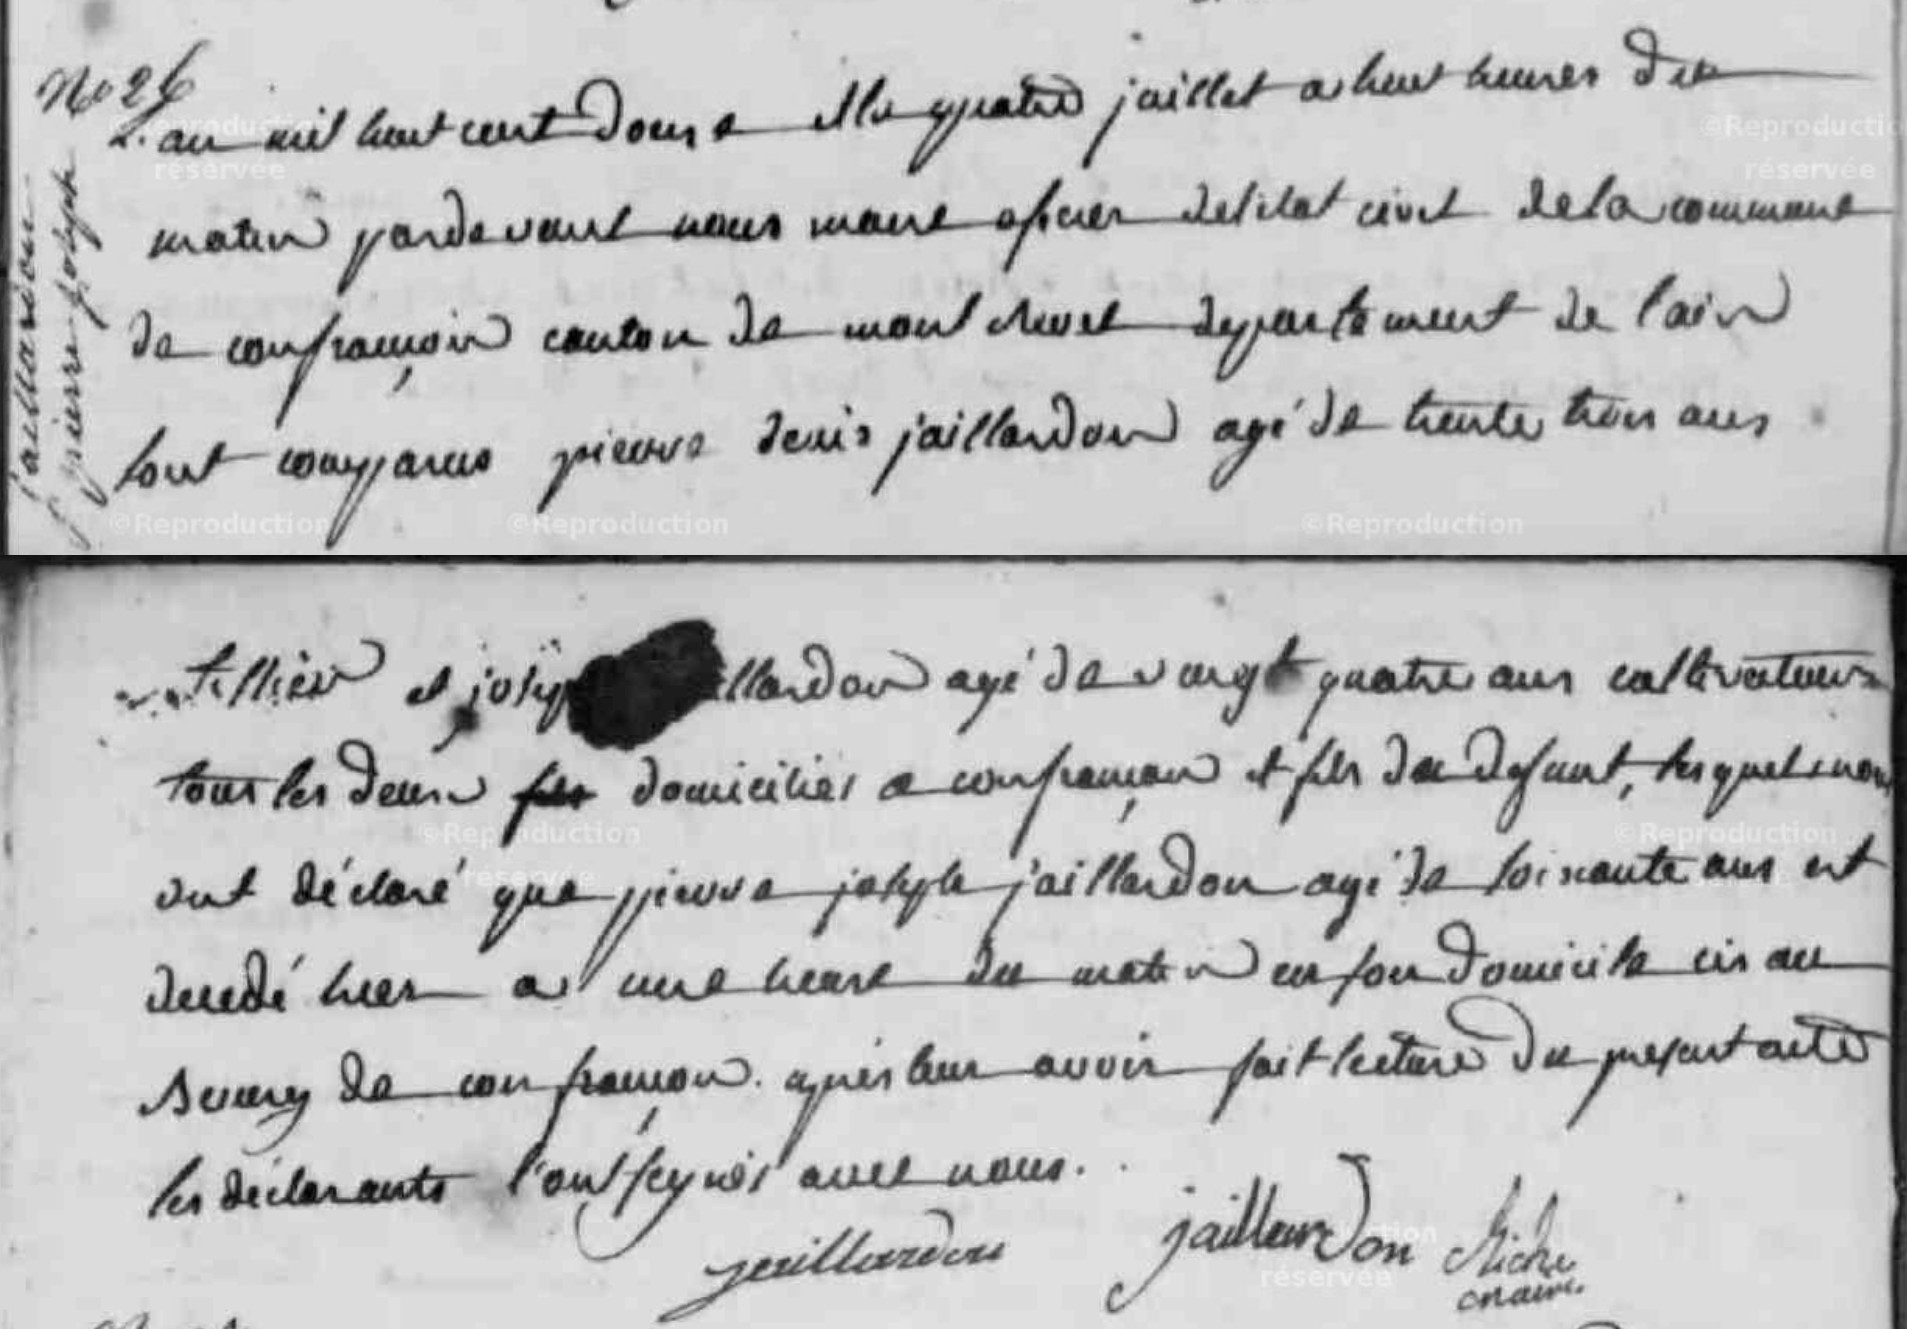 No 26
jaillardon
pierre joseph
L'an mil huit cent douze et le quatre jaillet a huit heures du
matin pardevant nous maire oficier de letat civil de la commune
de confrançon canton de mont revel departement de l'ain
sont comparus pierre denis jaillardon agé de trente trois ans
tellier et joseph illardon agé de vingt quatre ans cultivateurs
tous les deux fils domiciliés a confrançon et fils du defunt, lesquels nous
ont déclaré que pierre joseph jaillardon agé de soixante ans est
decedé hier a une heure du matin en son domicile cis au
de confrançon. apres leur avoir fait lecture du present acte
les déclarants l'ont signés avec nous.
jaillardon jaillardon Miche
maire
©Reproduction réservée
©Reproduction réservée
©Reproduction
©Reproduction
©Reproduction
©Reproduction réservée
©Reproduction
réservée